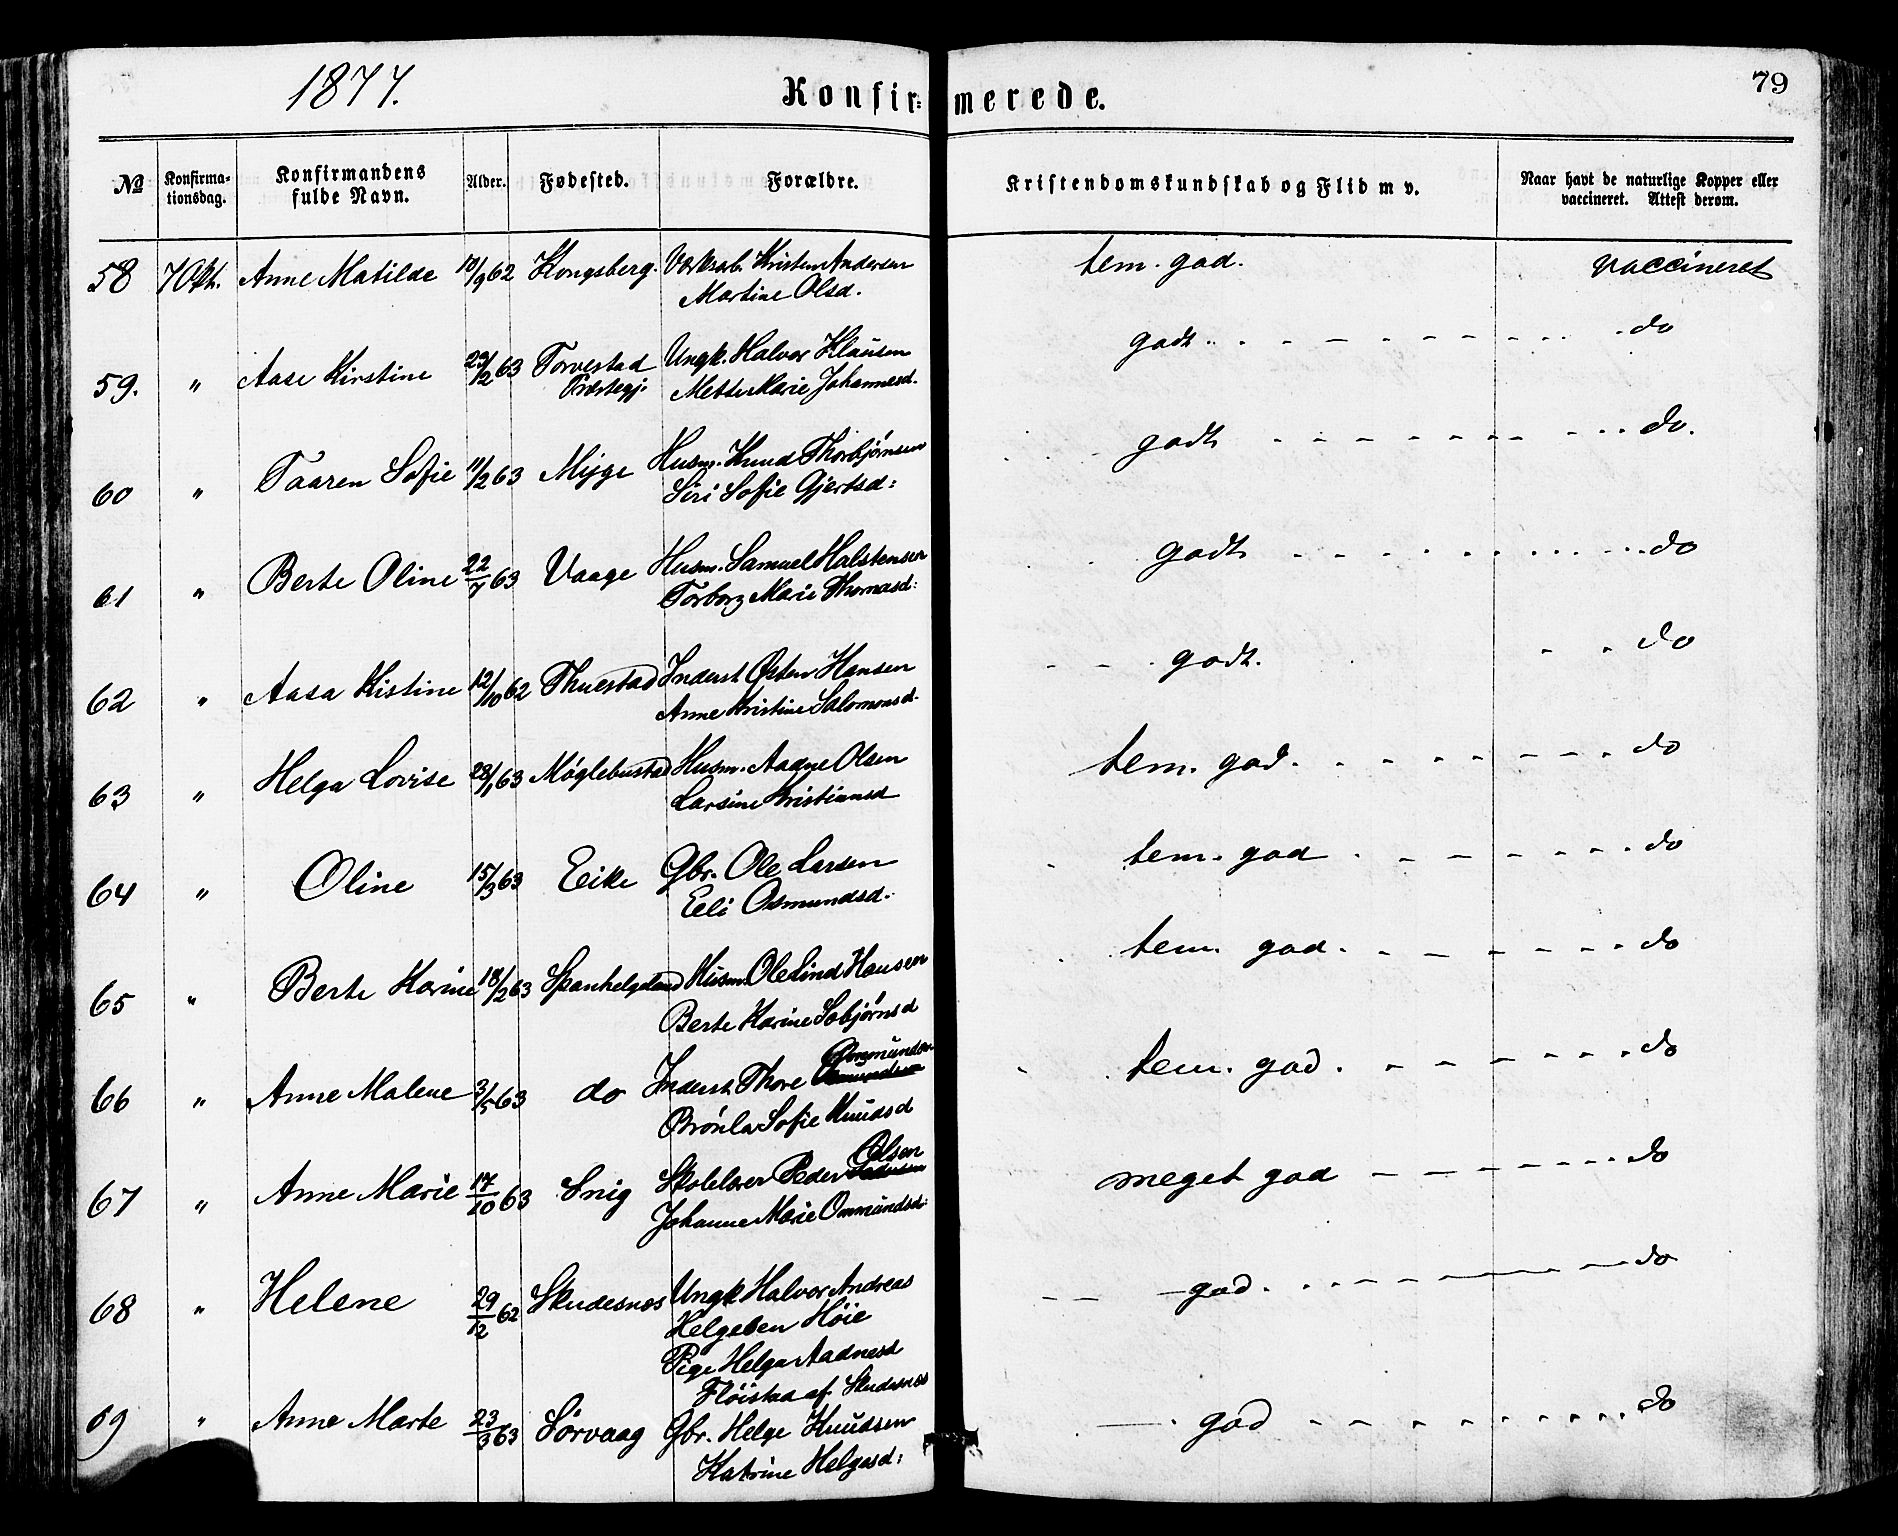 1877.
Konfir=merede.
79
№
Konfirma=
tionsdag.
Konfirmandens
fulde Navn.
Alder.
Fødested.
Forældre.
Kristendomskundskab og Flid m v.
Naar havt de naturlige Kopper eller
vaccineret. Attest derom.
58 7 Okt. Anne Matilde 10/9 62 Kongsberg. Kristen Andersen tem. god. vaccineret
Martine Olsd.
59. " Aase Kirstine 2/2 63 Torvestad Ungk. Halvor Klausen godt do
Præstegj: Mette Marie Johannesd.
60 " Taaren Sofie 11/2 63 Myge Husm. Knud Thorbjørnsen godt do.
Siri Sofie Gjertsd:
61 " Berte Oline 22/7 63 Vaage Husm. Samuel Halstensen godt do
Torborg Marie Thomasd:
62 " Aasa Kistine 12/10 62 Thuestad Inderst Østen Hansen godt. do
Anne Kristine Salomonsd.
63 " Helga Lovise 28/1 63 Møglebustad Husm. Aadne Olsen tem. god. do
Larsine Kristiansd
64 " Oline 15/3 63 Eeike Gbr. Ole Larsen tem. god do
Eeli Osmundsd.
65 " Berte Karine 18/2 63 Spanhelgeland Husm. Ole Lind Hansen tem. god. do
Berte Karine Sebjørnsd
Ommundsen
66 " Anne Malene 3/5 63 do Inderst Thore tem. god. do
Brønla Sofie Knudsd
Olsen
67 " Anne Marie 17/10 63 Snig Skolelærer Peder meget god do
Johanne Marie Ommundsd:
68 " Helene 29/12 62 Skudesnes Ungk Halvor Andreas god. do
Helgesen Høie
Pige Helga Aadnesd
Fløistaa af Skudesnes
69 " Anne Marte 23/3 63 Sørvaag Gbr. Helge Knudsen god do
Katrine Helgesd: